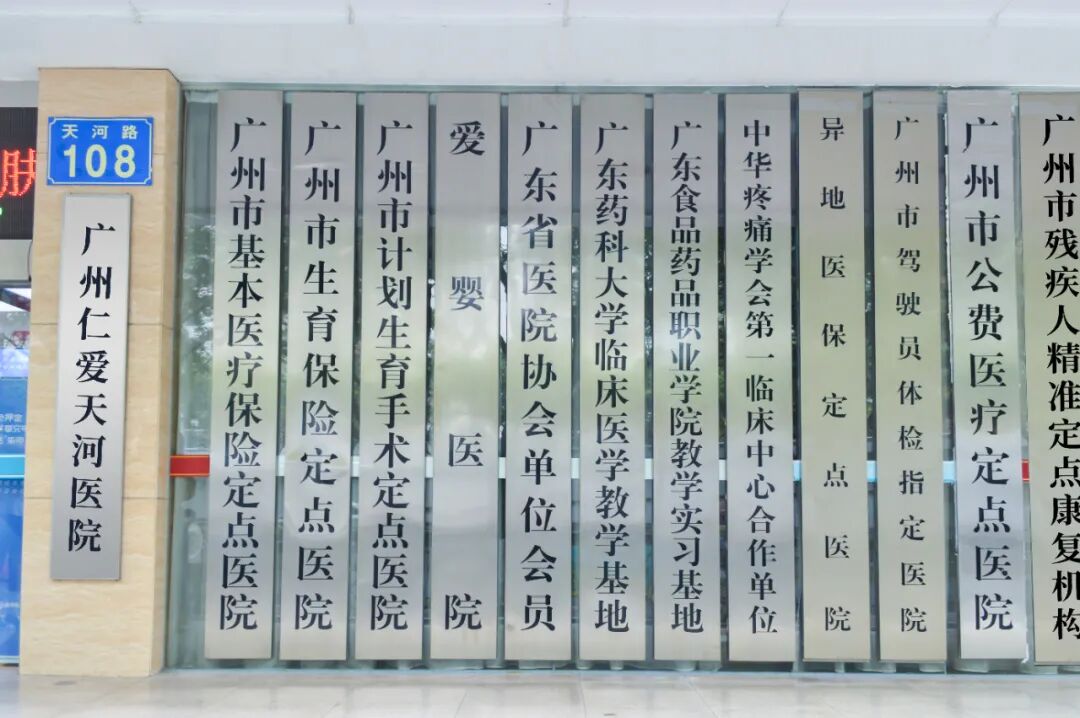 肤
天河路
108
广州仁爱天河医院
广州市基本医疗保险定点医院
广州市生育保险定点医院
广州市计划生育手术定点医院
爱婴医院
广东省医院协会会单位会员
广东药科大学临床医学教学基地
广东食品药品职业学院教学实习基地
中华疼痛学会第一临床中心合作单位
异地医保定点医院
广州市驾驶员体检指定医院
广州市公费医疗定点医院
广州市残疾人精准定点康复机构